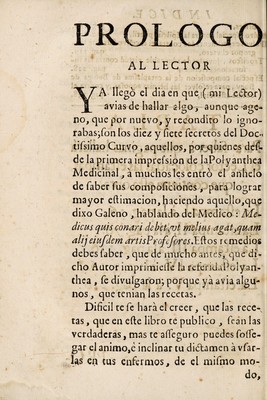 PROLOGO
AL LECTOR
YA llegò el dia en que (mi Lector)
avias de hallar algo, aunque age-
no, que por nuevo, y recondito lo igno-
rabas; son los diez y siete secretos del Doc-
tissimo Curvo, aquellos, por quienes des-
de la primera impression de la Polyanthea
Medicinal, à muchos les entrò el anhelo
de saber sus composiciones, para lograr
mayor estimacion, haciendo aquello, que
dixo Galeno, hablando del Medico: Me-
dicus quis conari debet, vt melius agat, quam
alij eiusdem artis Professores. Estos remedios
debes saber, que de mucho antes, que di-
cho Autor imprimiesse la referida Polyan-
thea, se divulgaron; porque yà avia algu-
nos, que tenian las recetas.
Dificil te se harà el creer, que las rece-
tas, que en este libro te publico, sean las
verdaderas, mas te asseguro puedes sosse-
gar el animo, è inclinar tu dictamen à vsar-
las en tus enfermos, de el mismo mo-
do,